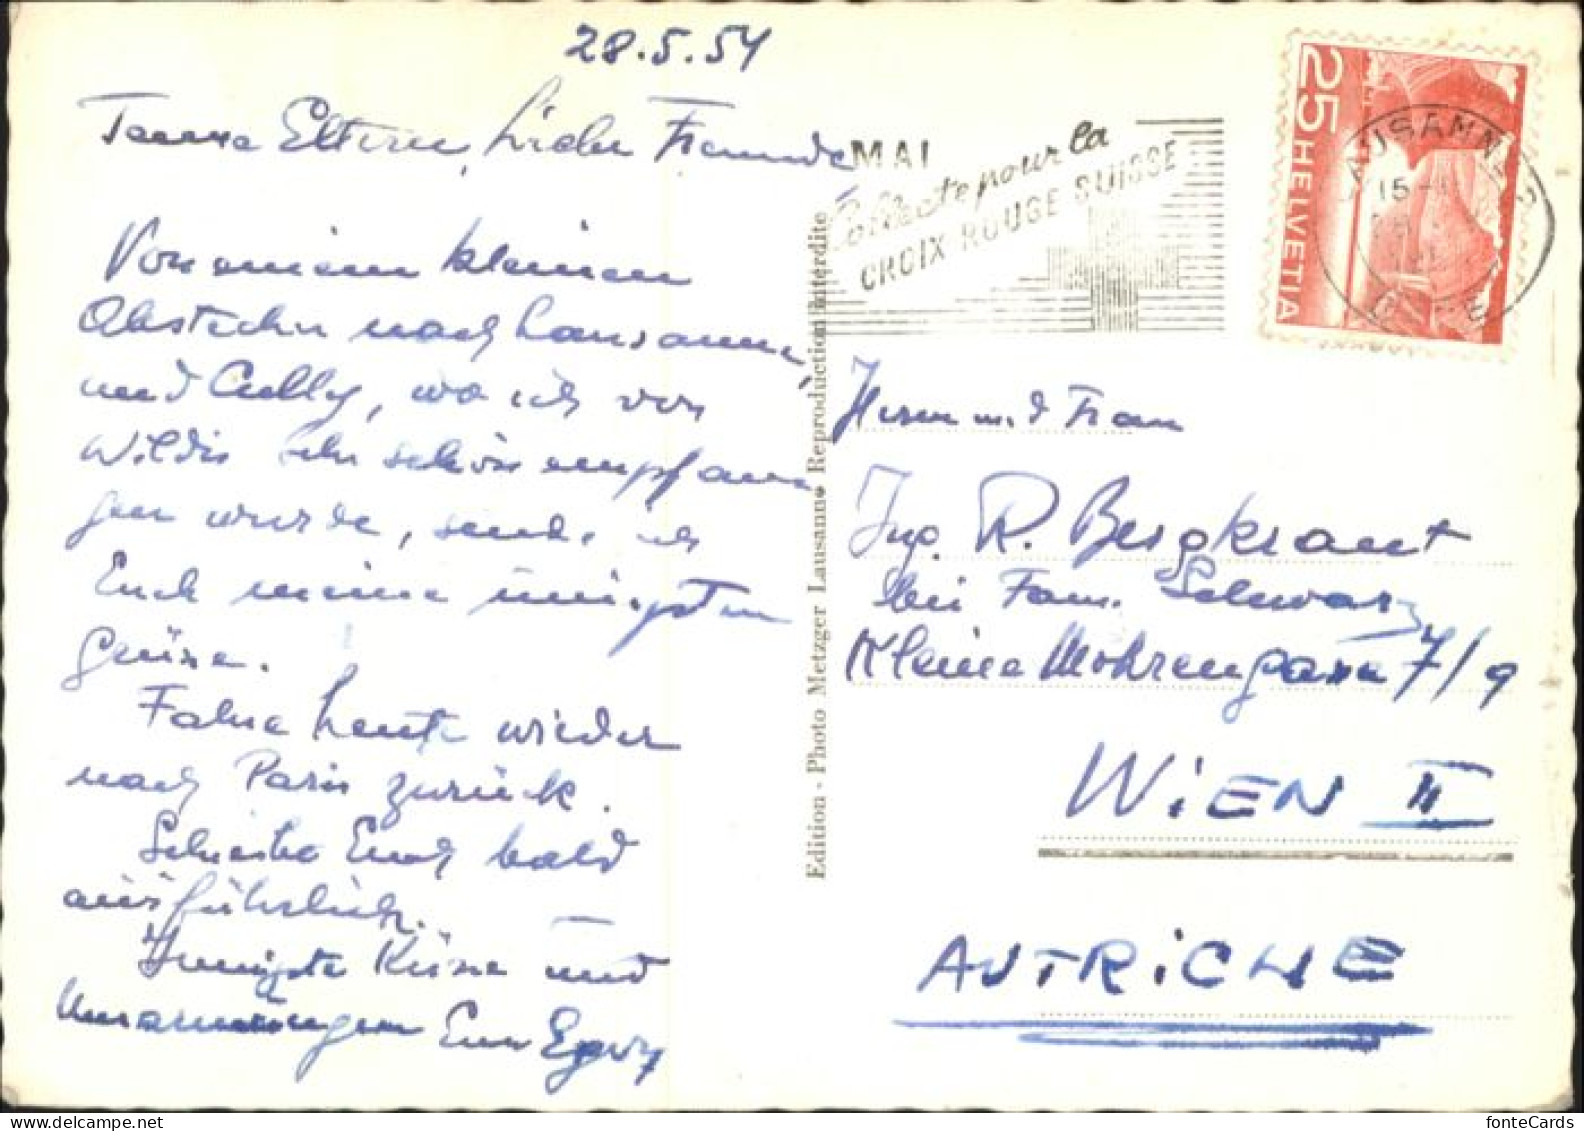 28.5.54
Teure Eltern, Liebe Freunde,
Von einem kleinen
Abstecher nach Lausanne,
und Cully, wo ich von
Wildis sehr schön empfan-
gen wurde, sende ich
Euch meine innigsten
Grüsse.
Fahre heute wieder
nach Paris zurück.
Schreibe Euch bald
ausführlich.
Innigste Küsse und
Umarmungen Euer
Edition - Photo Metzger Lausanne Reproduction interdite
MAI
Collecte pour la
CROIX ROUGE SUISSE
25 HELVETIA
LAUSANNE
15-
Herrn und Frau
Ing. R. Bergkraut
bei Fam. Schwarz
Kleine Mohrengasse 7/9
WiEN II
AUTRiCHE
fonteCards